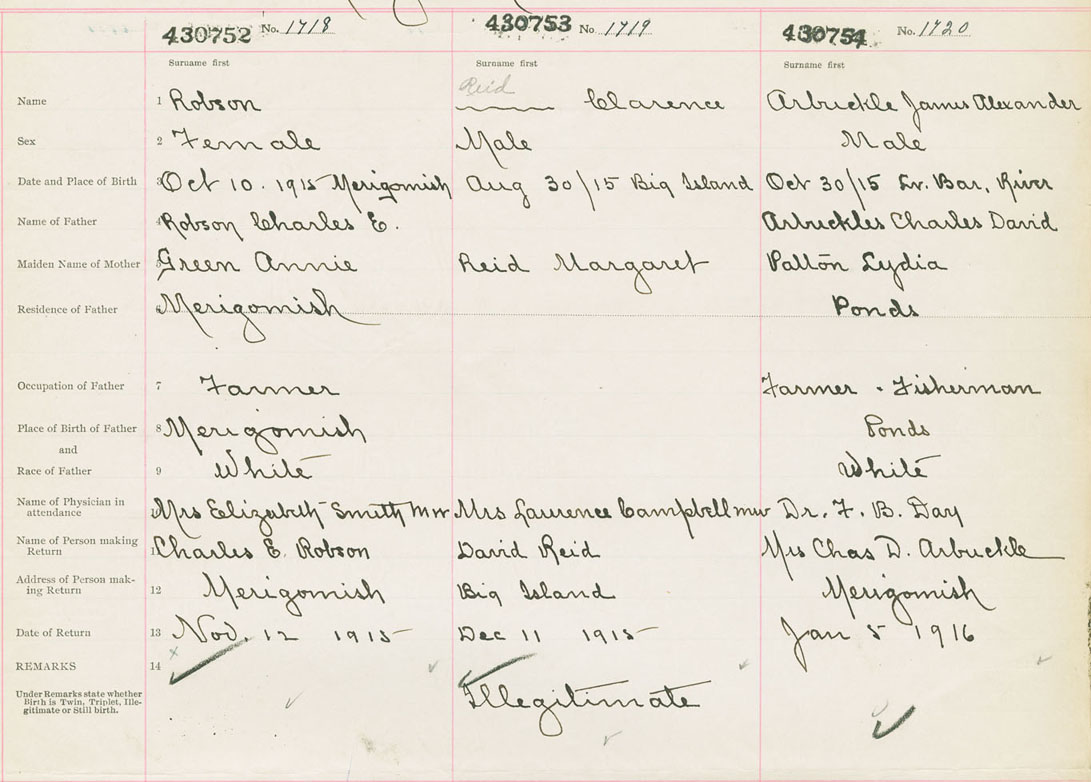 430752 No. 1718 430753 No 1719 430754 No. 1720
Surname first Surname first Surname first
Reid
Name 1 Robson Clarence Arbuckle James Alexander
Sex 2 Female Male Male
Date and Place of Birth 3 Oct 10. 1915 Merigomish Aug 30/15 Big Island Oct 30/15 Lr. Bar. River
Name of Father 4 Robson Charles E. Arbuckles Charles David
Maiden Name of Mother 5 Green Annie Reid Margaret Patton Lydia
Residence of Father 6 Merigomish Ponds
Occupation of Father 7 Farmer Farmer - Fisherman
Place of Birth of Father 8 Merigomish Ponds
and
Race of Father 9 White White
Name of Physician in
attendance Mrs Elizabeth Smith Mw Mrs Laurence Campbell mw Dr. F. B. Day
Name of Person making
Return 11 Charles E. Robson David Reid Mrs Chas D. Arbuckle
Address of Person mak-
ing Return 12 Merigomish Big Island Merigomish
Date of Return 13 Nov. 12 1915 Dec 11 1915 Jan 5 1916
REMARKS 14
Under Remarks state whether
Birth is Twin, Triplet, Ille-
gitimate or Still birth.
Illegitimate